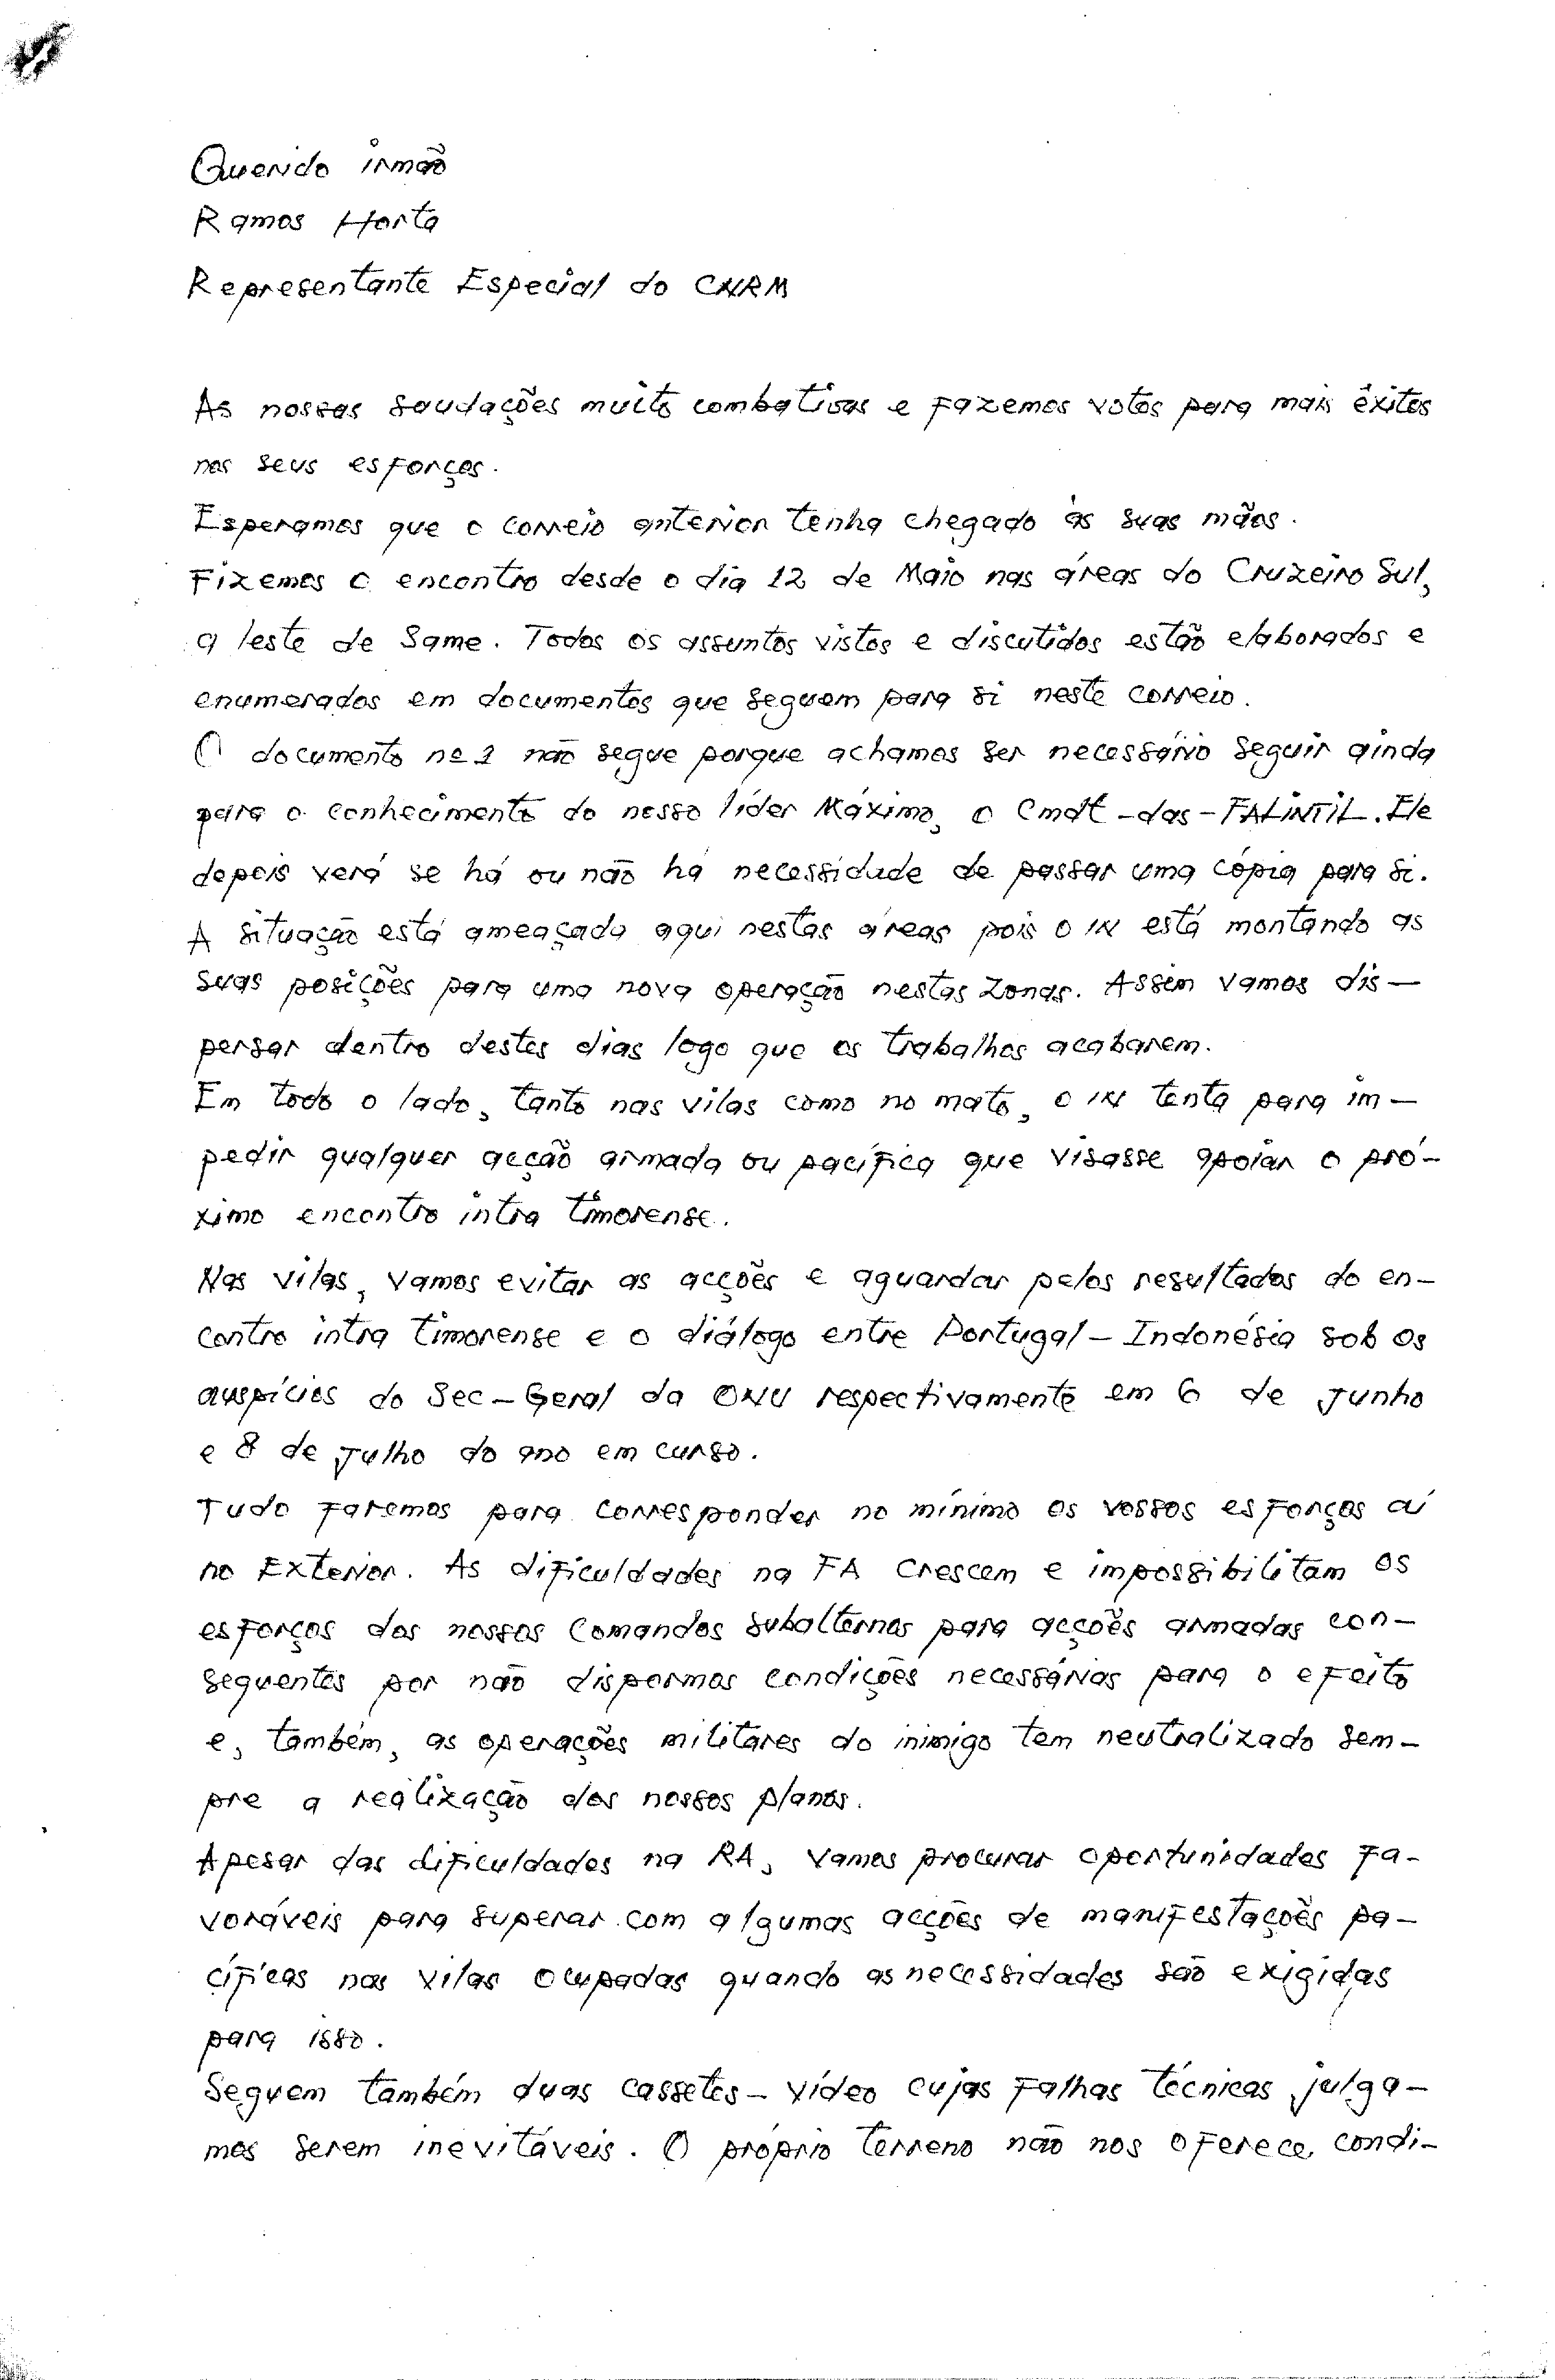 Querido irmão
Ramos Horta
Representante Especial do CNRM
As nossas saudações muito combativas e fazemos votos para mais êxitos
nos seus esforços.
Esperamos que o correio anterior tenha chegado às suas mãos.
Fizemos o encontro desde o dia 12 de Maio nas áreas do Cruzeiro Sul,
a leste de Same. Todos os assuntos vistos e discutidos estão elaborados e
enumerados em documentos que seguem para si neste correio.
O documento no 1 não segue porque achamos ser necessário seguir ainda
para o conhecimento do nosso líder Máximo, o Cmdt-das-FALINTIL. Ele
depois verá se há ou não há necessidade de passar uma cópia para si.
A situação está ameaçada aqui nestas áreas pois o IN está montando as
suas posições para uma nova operação nestas zonas. Assim vamos dis-
persar dentro destes dias logo que os trabalhos acabarem.
Em todo o lado, tanto nas vilas como no mato, o IN tenta para im-
pedir qualquer acção armada ou pacífica que visasse apoiar o pró-
ximo encontro intra timorense.
Nas vilas, vamos evitar as acções e aguardar pelos resultados do en-
contro intra timorense e o diálogo entre Portugal-Indonésia sob os
auspícios do Sec-Geral da ONU respectivamente em 6 de Junho
e 8 de Julho do ano em curso.
Tudo faremos para corresponder no mínimo os vossos esforços aí
no Exterior. As dificuldades na FA crescem e impossibilitam os
esforços dos nossos Comandos subalternos para acções armadas con-
sequentes por não dispormos condições necessárias para o efeito
e, também, as operações militares do inimigo tem neutralizado sem-
pre a realização dos nossos planos.
Apesar das dificuldades na RA, vamos procurar oportunidades fa-
voráveis para superar com algumas acções de manifestações pa-
cíficas nas vilas ocupadas quando as necessidades são exigidas
para isso.
Seguem também duas cassetes-vídeo cujas falhas técnicas julga-
mos serem inevitáveis. O próprio terreno não nos oferece condi-